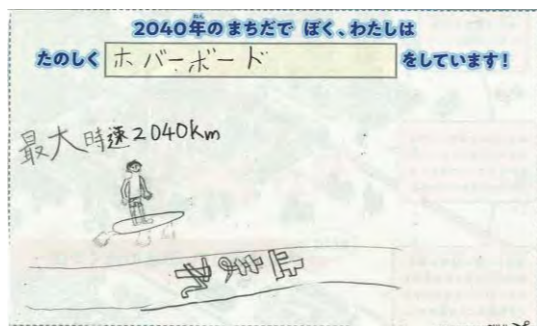 ねん
2040年のまちだで ぼく、わたしは
たのしく ホバーボード をしています!
最大時速2040km